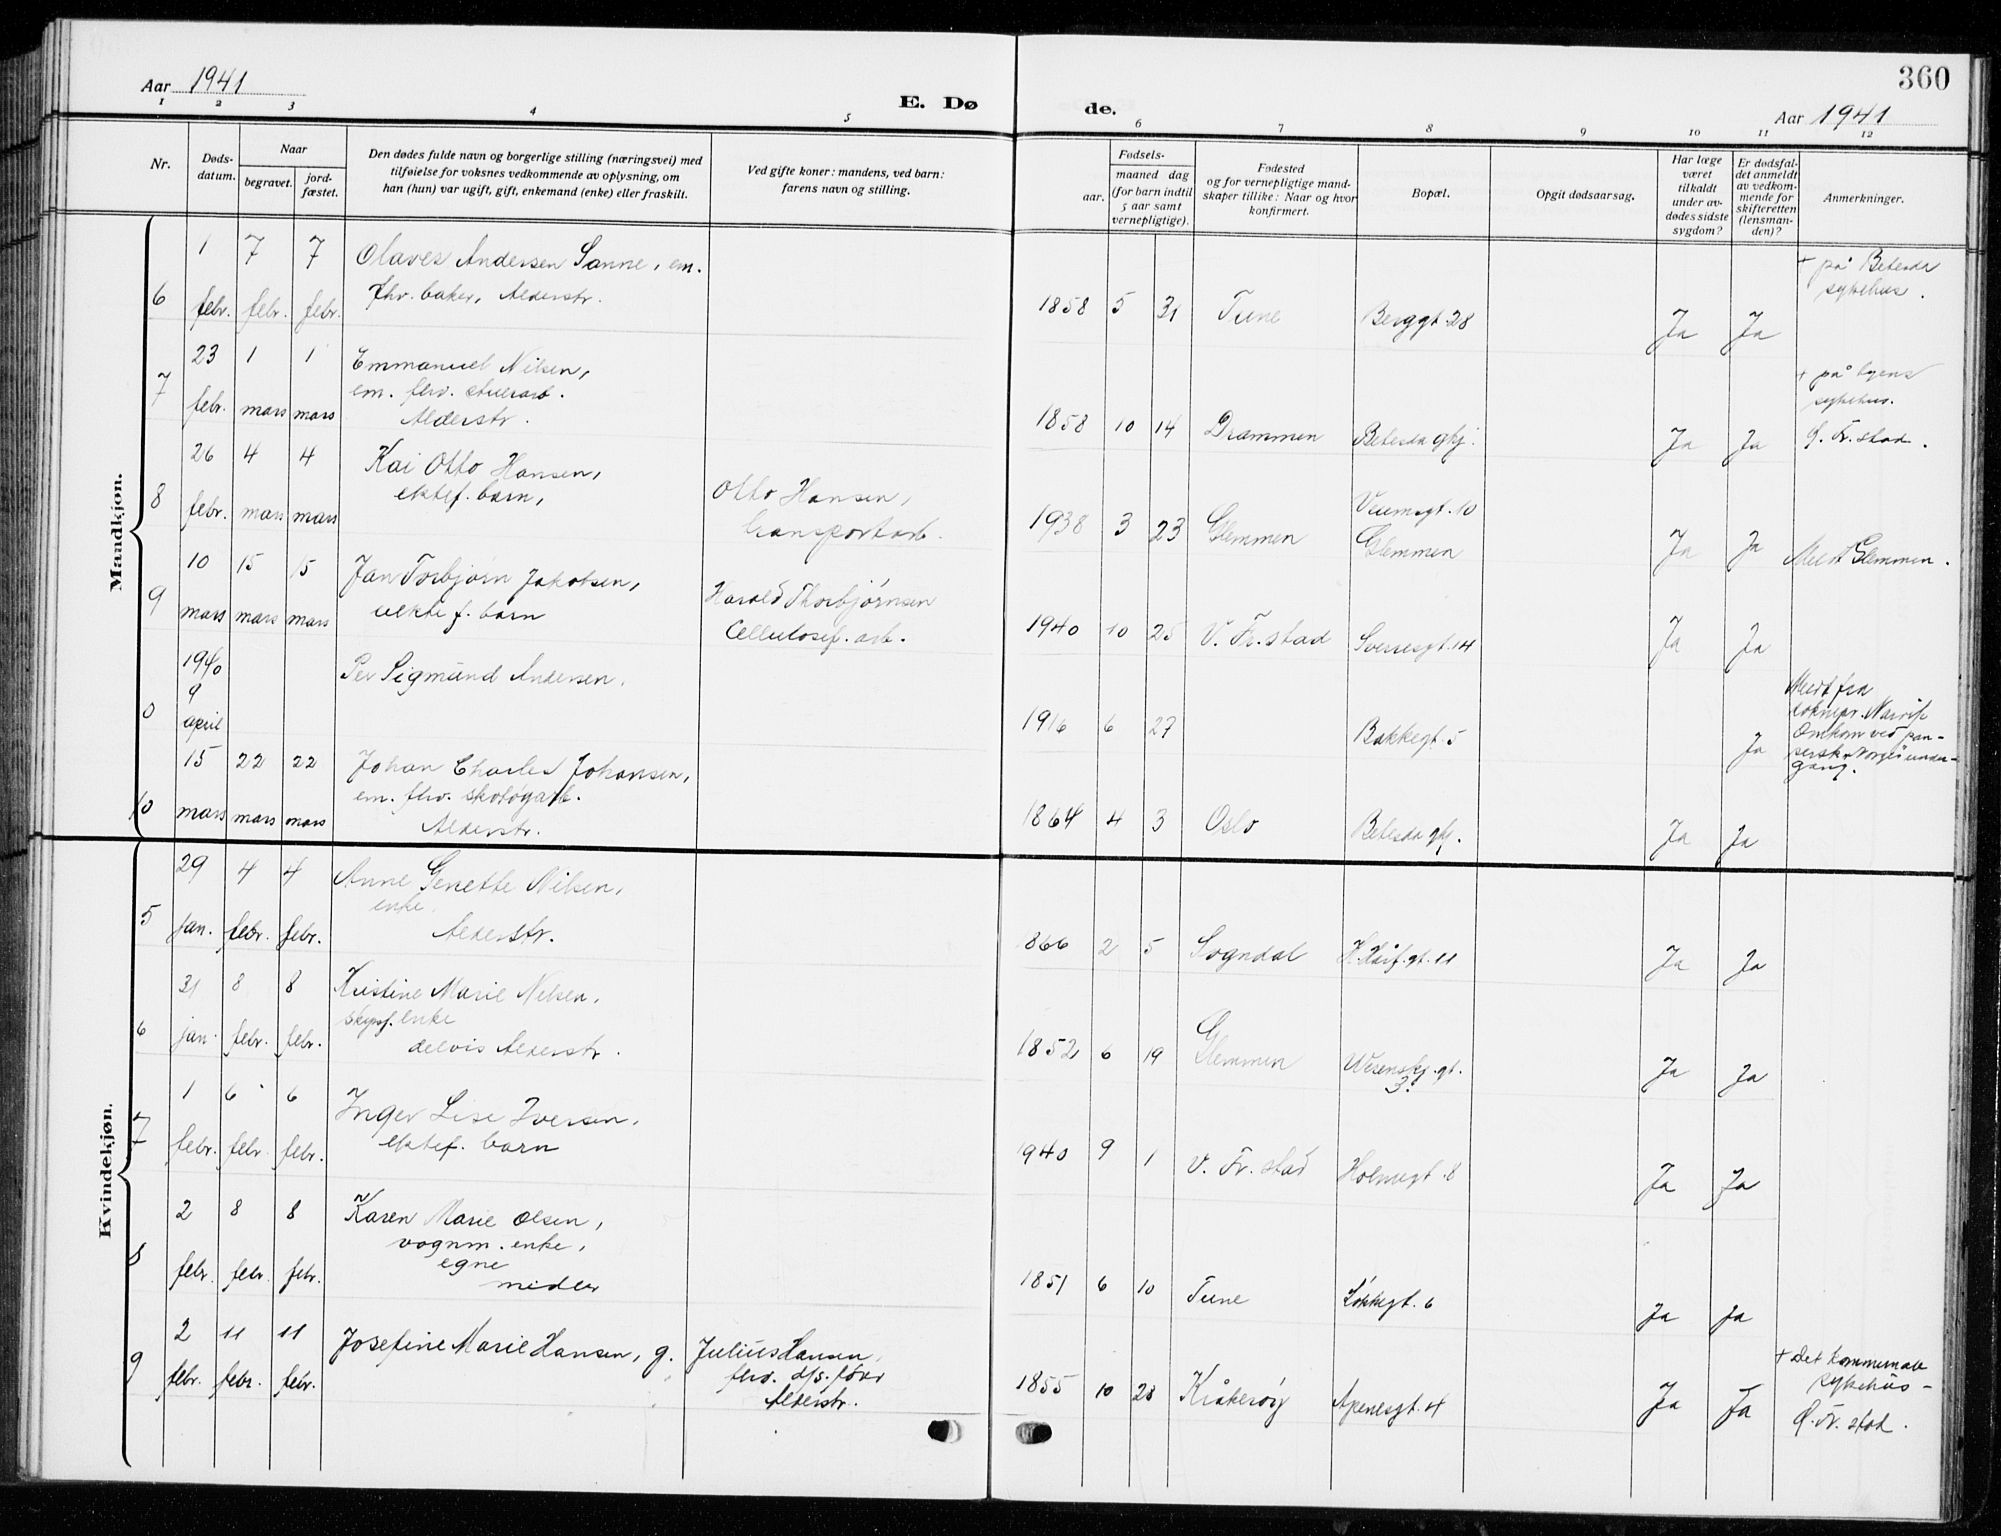 360
Aar 1941
E. Dø
de.
Aar 1941
1 2 3 4 5
6 7 8 9 10 11 12
Nr.
Døds-
datum.
Naar
begravet.
jord-
fæstet.
Den dødes fulde navn og borgerlige stilling (næringsvei) med
tilføielse for voksnes vedkommende av oplysning, om
han (hun) var ugift, gift, enkemand (enke) eller fraskilt.
Ved gifte koner: mandens, ved barn:
farens navn og stilling.
Fødsels-
aar.
maaned dag
(for barn indtil
5 aar samt
vernepligtige).
Fødested
og for vernepligtige mand-
skaper tillike: Naar og hvor
konfirmert.
Bopæl.
Opgit dødsaarsag.
Har læge
været
tilkaldt
under av-
dødes sidste
sygdom?
Er dødsfal-
det anmeldt
av vedkom-
mende for
skifteretten
(lensman-
den)?
Anmerkninger.
Mandkjøn.
6
1 7 7
febr. febr. febr.
Olaves Andersen Sanne, em.
fhv. baker, Alderstr.
1858 5 31 Tune Berggt. 28 Ja Ja
+ på Betesda
sykehus.
7
23 1 1
febr. mars mars
Emmanuel Nilsen,
em. fhv. stuerarb.
Alderstr.
1858 10 14 Drammen Betesda ghj. Ja Ja
+ på byens
sykehus.
Ø. Fr.stad.
8
26 4 4
febr. mars mars
Kai Otto Hansen,
ektef. barn,
Otto Hansen,
transportarb.
1938 3 23 Glemmen
Veumsgt. 10
Glemmen
Ja Ja
Meldt Glemmen.
9
10 15 15
mars mars mars
Jan Torbjørn Jakobsen,
uekte f. barn
Harald Thorbjørnsen
Cellulosef. arb.
1940 10 25 V. Fr.stad Sverresgt. 14 Ja Ja
0
1940
9
april
Per Sigmund Andersen.
1916 6 27 Bakkegt 5 Ja
Meldt fra
soknepr. Narvik
Omkom ved pan-
sersk. Norges under-
gang.
10
15 22 22
mars mars mars
Johan Charles Johansen,
em. fhv. skotøyarb.
Alderstr.
1864 4 3 Oslo Betesda ghj. Ja Ja
Kvindekjøn.
5
29 4 4
jan. febr. febr.
Anne Genette Nilsen,
enke
Alderstr.
866 2 5 Sogndal H. Hårf. gt. 11 Ja Ja
6
31 8 8
jan. febr. febr.
Kristine Marie Nilsen,
skipsf. enke
delvis Alderstr.
1852 6 19 Glemmen
Wesenskj. gt.
3.
Ja Ja
7
1 6 6
febr. febr. febr.
Inger Lise Iversen,
ektef. barn
940 9 1 V. Fr. stad Holmegt. 8 Ja Ja
8
2 8 8
febr. febr. febr.
Karen Marie Olsen,
vognm. enke,
egne
midler
1851 6 10 Tune Løkkegt. 6 Ja Ja
9
2 11 11
febr. febr. febr.
Josefine Marie Hansen, g.
Julius Hansen,
fhv. d/s. fører
Alderstr.
1855 10 28 Kråkerøy Apenesgt. 4 Ja Ja
+ Det kommunale
sykehus -
Ø. Fr. stad.